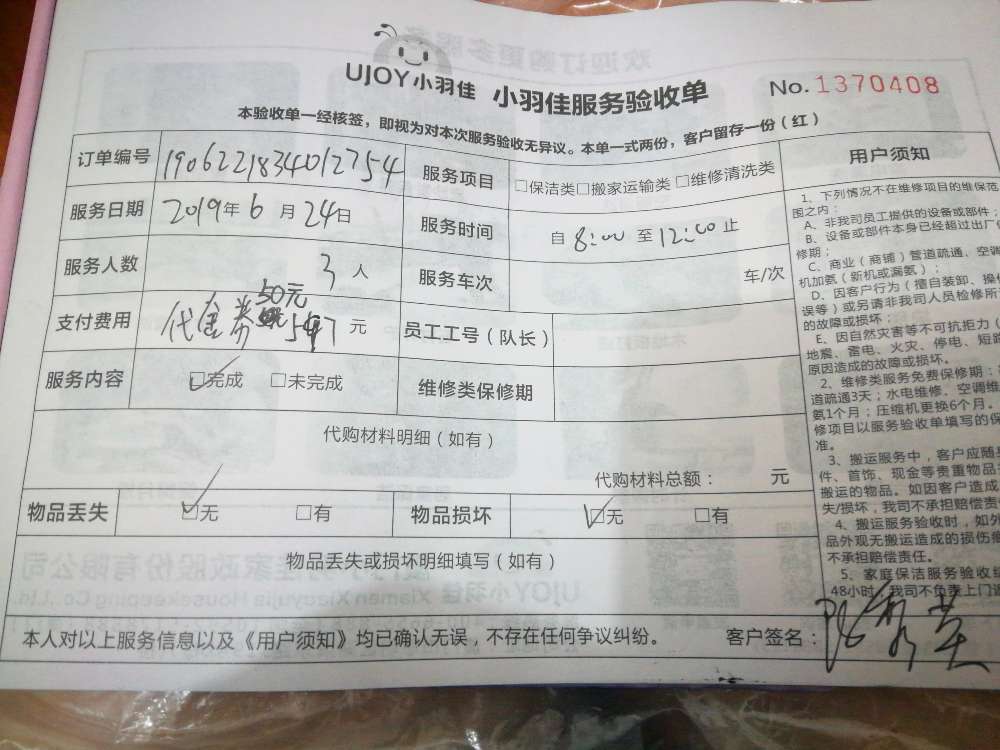 UJOY小羽佳 小羽佳服务验收单 No. 1370408
本验收单一经核签，即视为对本次服务验收无异议。本单一式两份，客户留存一份（红）
订单编号 1906221834012754 服务项目 □保洁类□搬家运输类□维修清洗类
服务日期 2019年6月24日 服务时间 自 8:00 至 12:00 止
服务人数 3 人 服务车次 车/次
支付费用 代金券 50元 547 元 员工工号（队长）
服务内容 ☑完成 □未完成 维修类保修期
代购材料明细（如有）
代购材料总额： 元
物品丢失 ☑无 □有 物品损坏 ☑无 □有
物品丢失或损坏明细填写（如有）
本人对以上服务信息以及《用户须知》均已确认无误，不存在任何争议纠纷。 客户签名：
用户须知
1、下列情况不在维修项目的维保范
围之内：
A、非我司员工提供的设备或部件；
B、设备或部件本身已经超过出厂
修期；
C、商业（商铺）管道疏通、空调
机加氨（新机或漏氨）；
D、因客户行为（擅自装卸、操
误等）或另请非我司人员检修所
的故障或损坏；
E、因自然灾害等不可抗拒力（
地震、雷电、火灾、停电、短路
原因造成的故障或损坏。
2、维修类服务免费保修期：
道疏通3天；水电维修、空调维
氨1个月；压缩机更换6个月。
修项目以服务验收单填写的保
准。
3、搬运服务中，客户应随
件、首饰、现金等贵重物品
搬运的物品。如因客户造成
失/损坏，我司不承担赔偿责
4、搬运服务验收时，如外
品外观无搬运造成的损伤
不承担赔偿责任。
5、家庭保洁服务验收
48小时，我司不负责上门